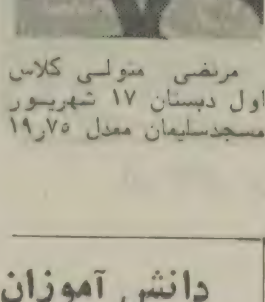 مرتضی متولی کلاس
اول دبستان ۱۷ شهریور
مسجدسلیمان معدل ۱۹٫۷۵
دانش آموزان